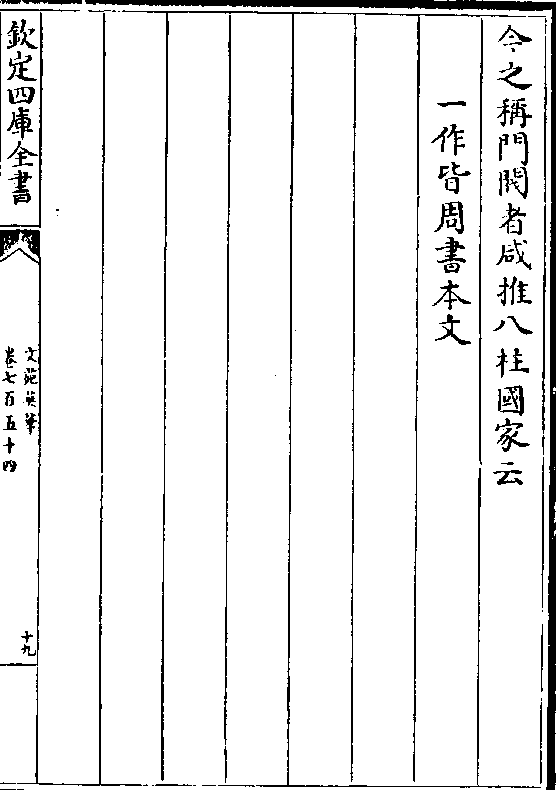 今之稱門閥者咸推八柱國家云
一作皆周書本文
欽定四庫全書
文苑英華
卷七百五十四
十九